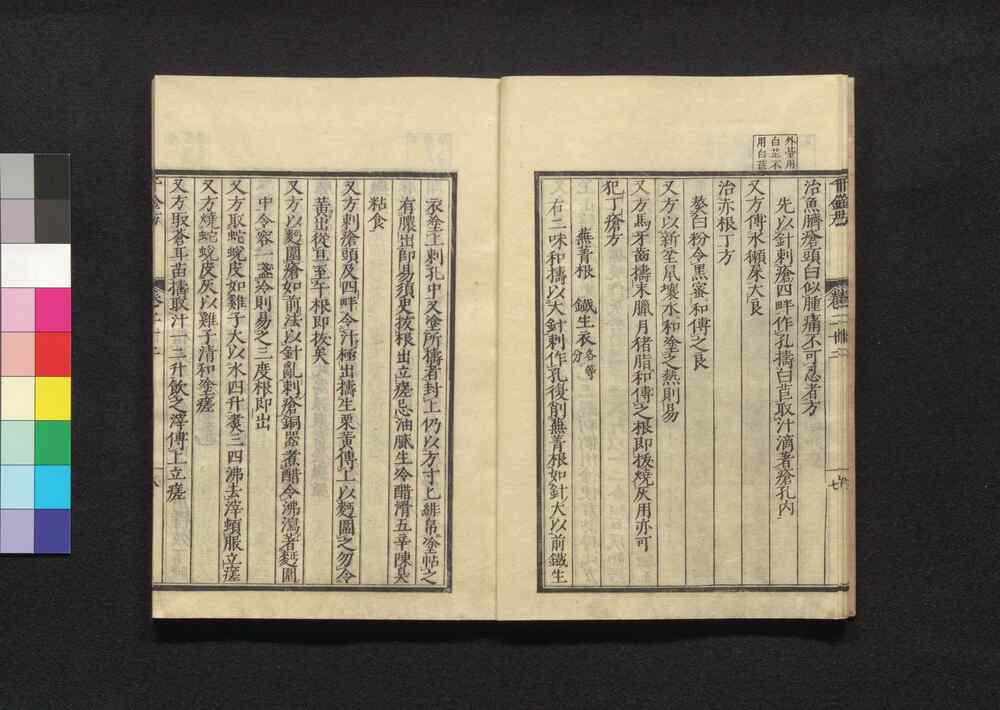 外臺用
白芷不
用白苣
治魚臍瘡頭白似腫痛不可忍者方
先以針刺瘡四畔作孔擣白苣取汁滴著瘡孔內
又方傅水獺屎大良
治赤根丁方
熬白粉令黑蜜和傅之良
又方以新坌鼠壤水和塗之熱則易
又方馬牙齒擣末臘月猪脂和傅之根即拔燒灰用亦可
犯丁瘡方
蕪菁根 鐵生衣各等分
右二味和擣以大針刺作孔復削蕪菁根如針大以前鐵生
衣塗上刺孔中又塗所擣者封上仍以方寸匕緋帛塗帖之
有膿出即易須臾拔根出立瘥忌油膩生冷醋滑五辛陳臭
粘食
又方刺瘡頭及四畔令汁極出擣生栗黃傅上以麪圍之勿令
黃出從旦至午根即拔矣
又方以麪圍瘡如前法以針亂刺瘡銅器煮醋令沸瀉著麪圍
中令容一盞冷則易之三度根即出
又方取蛇蛻皮如雞子大以水四升煮三四沸去滓頓服立瘥
又方燒蛇蛻皮灰以雞子清和塗瘥
又方取蒼耳苗擣取汁一二升飲之滓傅上立瘥